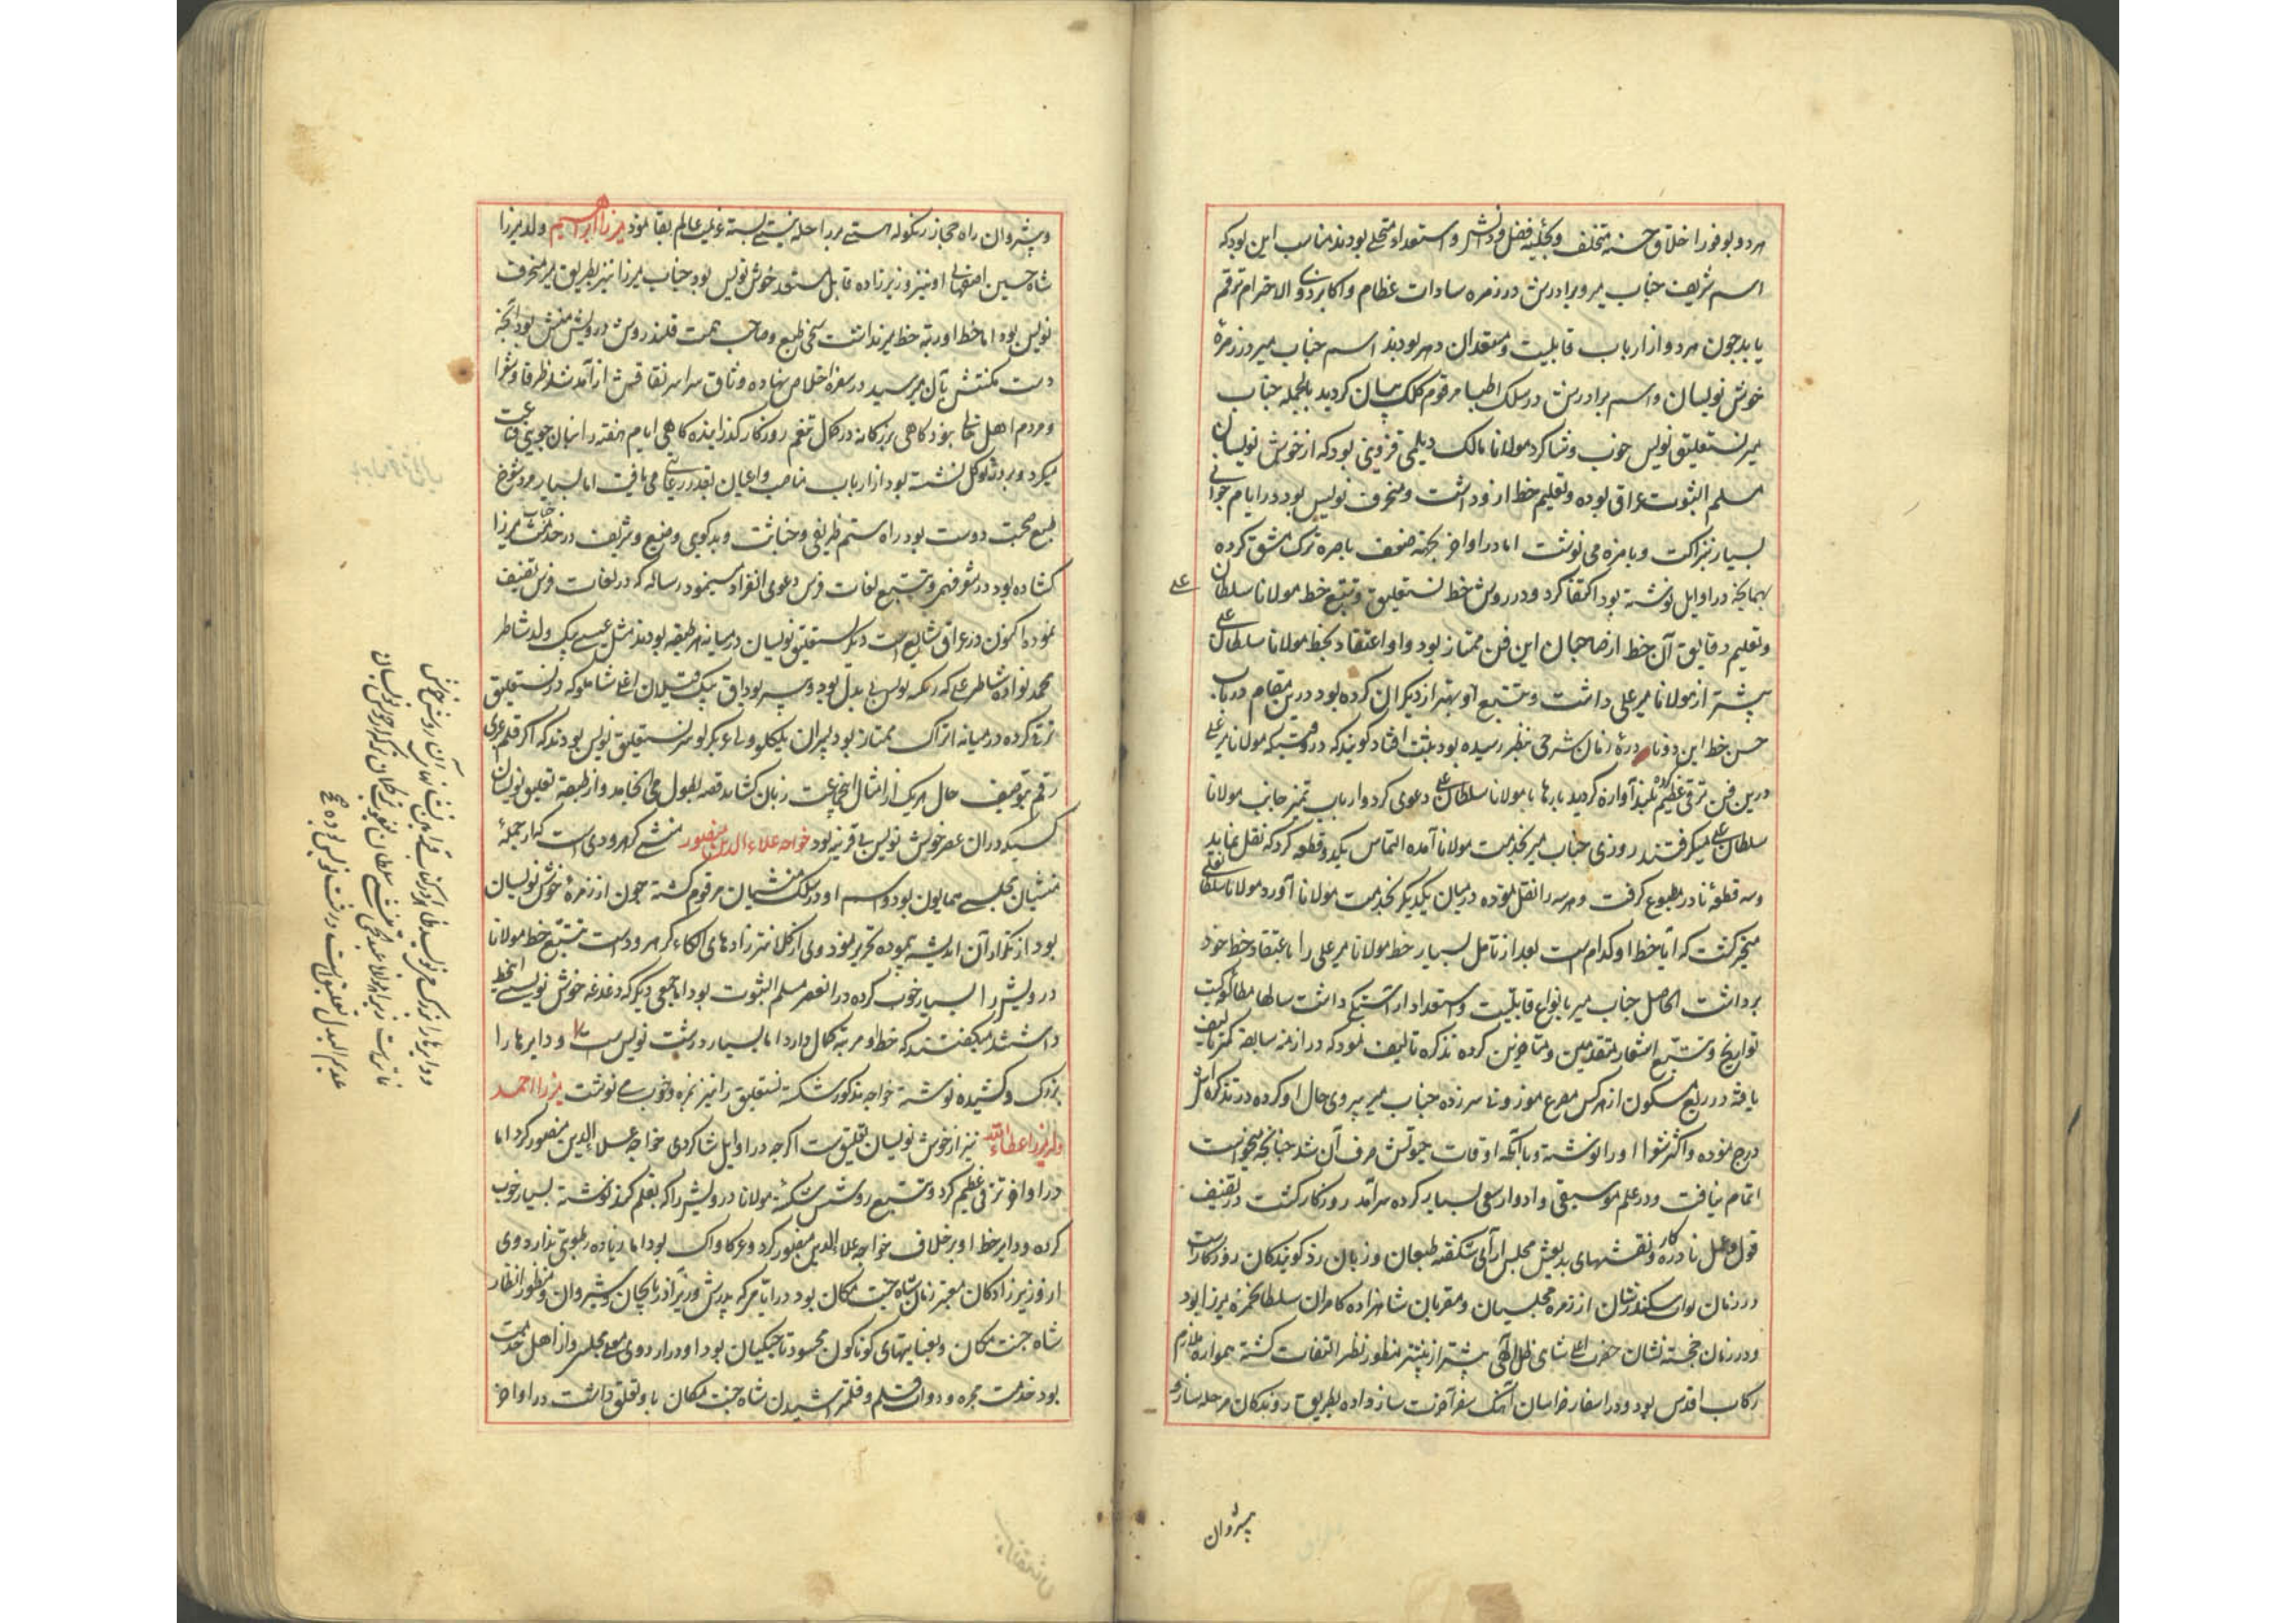 هر دو بوفور اخلاق حسنه متخلق و بحلیه فضل و دانش و استعداد متحلی بودند مناسب این بود که
اسم شریف جناب میر و برادرش در زمره سادات عظام و اکابر ذوی الاحترام ترقم
یابد چون هر دو از ارباب قابلیت و مستعدان دهر بودند اسم جناب میر در زمرهٔ
خوش نویسان و اسم برادرش در سلک اطبا مرقوم کلک بیان کردید بالجمله جناب
میر نستعلیق نویس خوب و شاکرد مولانا مالک دیلمی قزوینی بود که از خوش نویسان
مسلم الثبوت عراق بوده و تعلیم خط ازو داشت و منحرف نویس بود در ایام جوانی
بسیار بنزاکت و بامزه می نوشت اما در اواخر بجهته ضعف باصره ترک مشق کرده
بهمانچه در اوایل نوشته بود اکتفا کرد و در روش خط نستعلیق و تتبع خط مولانا سلطان
علی
و تعلیم دقایق آن خط از صاحبان این فن ممتاز بود و او اعتقاد بخط مولانا سلطان علی
بیشتر از مولانا میر علی داشت و تتبع او بهتر از دیکران کرده بود درین مقام در باب
حسن خط این دو نادرهٔ زمان شرحی بنظر رسیده بود ثبت افتاد کویند که در وقتیکه مولانا میر علی
درین فن ترقی عظیم کرده بلند آوازه کردید بارها با مولانا سلطان علی دعوی کرد و ارباب تمیز جانب مولانا
سلطان علی میکرفتند روزی جناب میر بخدمت مولانا آمده التماس یکدو قطعه کرد که نقل نماید
و سه قطعهٔ نادر مطبوع کرفت و هر سه را نقل نموده در میان یکدیکر بخدمت مولانا آورد مولانا سلطانعلی
متحیر کشت که آیا خط او کدام است بعد از تامل بسیار خط مولانا میر علی را باعتقاد خط خود
برداشت الحاصل جناب میر بانواع قابلیت و استعداد آراستکی داشت سالها مطالعه کتب
تواریخ و تتبع اشعار متقدمین و متاخرین کرده تذکره تالیف نمود که در ازمنه سابقه کمتر تالیف
یافته در ربع مسکون از هر کس مصرع موزونی سر زده جناب میر پیروی حال او کرده در تذکره اش
درج نموده و اکثر شعرا او را نوشته و با آنکه اوقات حیوتش صرف آن شد چنانچه میخواست
اتمام نیافت و در علم موسیقی و ادوار سعی بسیار کرده سرآمد روزکار کشت در تصنیف
قول و عمل نادره کار و نقشهای بدیعش مجلس آرای شکفته طبعان و زبان زد کویندکان روزکار است
در زمان نواب سکندر شان از زمره مجلسیان و مقربان شاهزاده کامران سلطان حمزه میرزا بود
و در زمان خجسته نشان حضرت اعلی شاهی ظل اللهی بیشتر از پیشتر منظور نظر التفات کشته همواره ملازم
رکاب اقدس بود و در اسفار خراسان آهنک سفر آخرت ساز داده بطریق روندکان مرحله سازی
پیشروان
و پیشروان راه حجاز زنکوله هستی بر راحله نیستی بسته عزیمت عالم بقا نمود میرزا ابراهیم ولد میرزا
شاه حسین اصفهانی او نیز وزیر زاده قابل مستعد خوش نویس بود جناب میرزا نیز بطریق میر منحرف
نویس بود اما خط او رتبه خط میر نداشت سخی طبع و صاحب همت قلندر روش درویش منش بود آنچه
دست مکنتش بآن میرسید در سفره اخلاص نهاده وثاق سراسر نفاقش از آمد شد ظرفا و شعرا
و مردم اهل خالی نبود کاهی بزرکانه در کمال تنعم روزکار کذرانیده کاهی ایام هفته را بنان جوین قناعت
میکرد و بر در توکل نشسته بود از ارباب مناصب و اعیان بقدر رعایتی می یافت اما بسیار مرد شوخ
طبع صحبت دوست بود راه ستم ظریفی و خباثت و بدکویی وضیع و شریف در خدمت جناب میرزا
کشاده بود در شعر فهمی و تتبع لغات فرس دعوی انفراد مینمود رساله که در لغات فرس تصنیف
نموده اکنون در عراق شایع است دیکر نستعلیق نویسان در میانه هر طبقه بودند مثل عیسی بیک ولد شاطر
محمد نواده شاطر علی که رنکه نویس بی بدل بود و پسر بوداق بیک قبلان اغلی شاملو که در نستعلیق
ترقی کرده در میانه اتراک ممتاز بود پسران نستعلیق نویس بودند که اکر قلم عرض
رقم بتوصیف حال هر یک از امثال این جماعت زبان کشاید قصه بطول می انجامد و از طبقه تعلیق نویسان
کسیکه در ان عصر خویش نویس بی قرینه بود خواجه علاء الدین منصور منشی کرهرودی است که از جمله
منشیان مجلس همایون بود و اسم او در سلک منشیان مرقوم کشته چون از زمرهٔ خوش نویسان
بود از تکرار آن اندیشه ننموده تحریر نمود وی از کلانتر زادهای الکاء کرهرود است تتبع خط مولانا
درویش را بسیار خوب کرده در انعصر مسلم الثبوت بود اما جمعی دیکر که دغدغه خوش نویسی این خط
داشتند میکفتند که خط او مرتبه کمال دارد اما بسیار درشت نویس است و دایرها را
بزرک و کشیده نوشته خواجه مذکور شکسته نستعلیق را نیز بمزه و خوب می نوشت میرزا احمد
ولد میرزا عطاء الله نیز از خوش نویسان تعلیق است اکرچه در اوایل شاکردی خواجه علاء الدین منصور کرد اما
در اواخر ترقی عظیم کرد و تتبع روش شکسته مولانا درویش را که بقلم کنده نوشته بسیار خوب
کرده و دایر خط او بر خلاف خواجه علاء الدین منصور کرد و بود اما زیاده رطوبتی ندارد وی
از وزیر زادکان معتبر زمان شاه جنت مکان بود در ایامی که پدرش وزیر آذربایجان و شیروان و منظور انظار
شاه جنت مکان و بعنایتهای کوناکون محسود تاجیکیان بود او در اردوی معلی مجلس و از اهل خدمت
بود خدمت محبره و دوات و قلم و قلمتراشیدن شاه جنت مکان باو تعلق داشت در اواخر